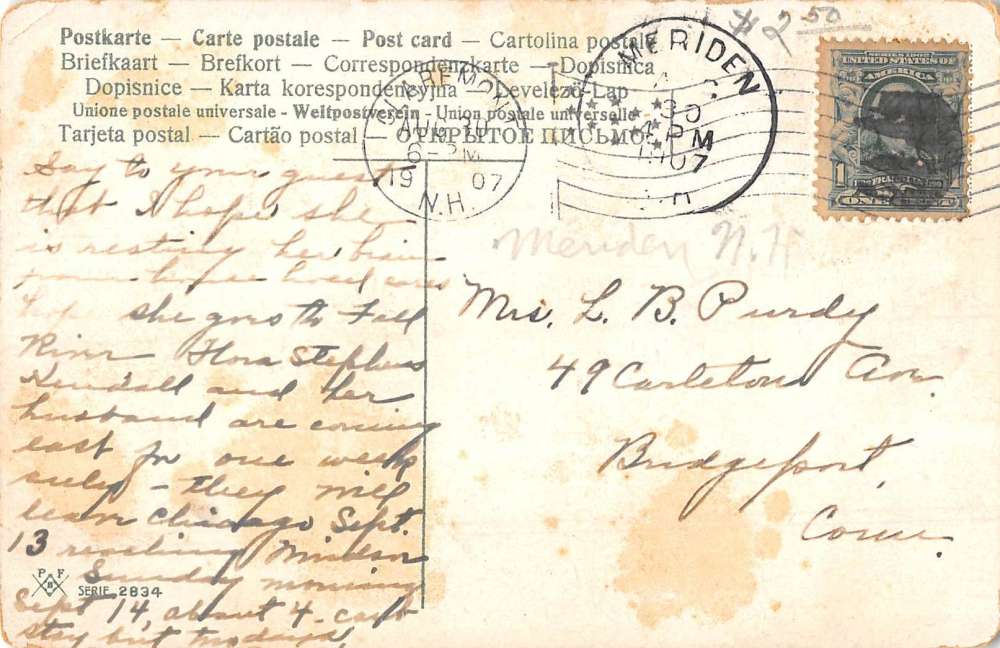 $2.50
Postkarte — Carte postale — Post card — Cartolina postale
Briefkaart — Brefkort — Correspondenzkarte — Dopisnica
Dopisnice — Karta korespondencyjna — Levelező-Lap
Unione postale universale - Weltpostverein - Union postale universelle
Tarjeta postal — Cartão postal — ОТКРЫТОЕ ПИСЬМО
CLAREMONT
PM
19 07
N.H.
MERIDEN
30
PM
1907
SERIES 1902
UNITED STATES OF
AMERICA
1 FRANKLIN 1
ONE CENT
Meriden N.H
Say to your guest
that I hope she
is resting her brain
from house hold cares
hope she goes to Fall
River Flora Stephens
Kendall and her
husband are coming
east for one week
only – they will
leave Chicago Sept.
13 reaching Windsor
Sunday morning
Sept 14, about 4. can't
stay but two days,
Mrs. L. B. Purdy
49 Carleton Ave
Bridgeport,
Conn.
P F
B
SERIE 2834